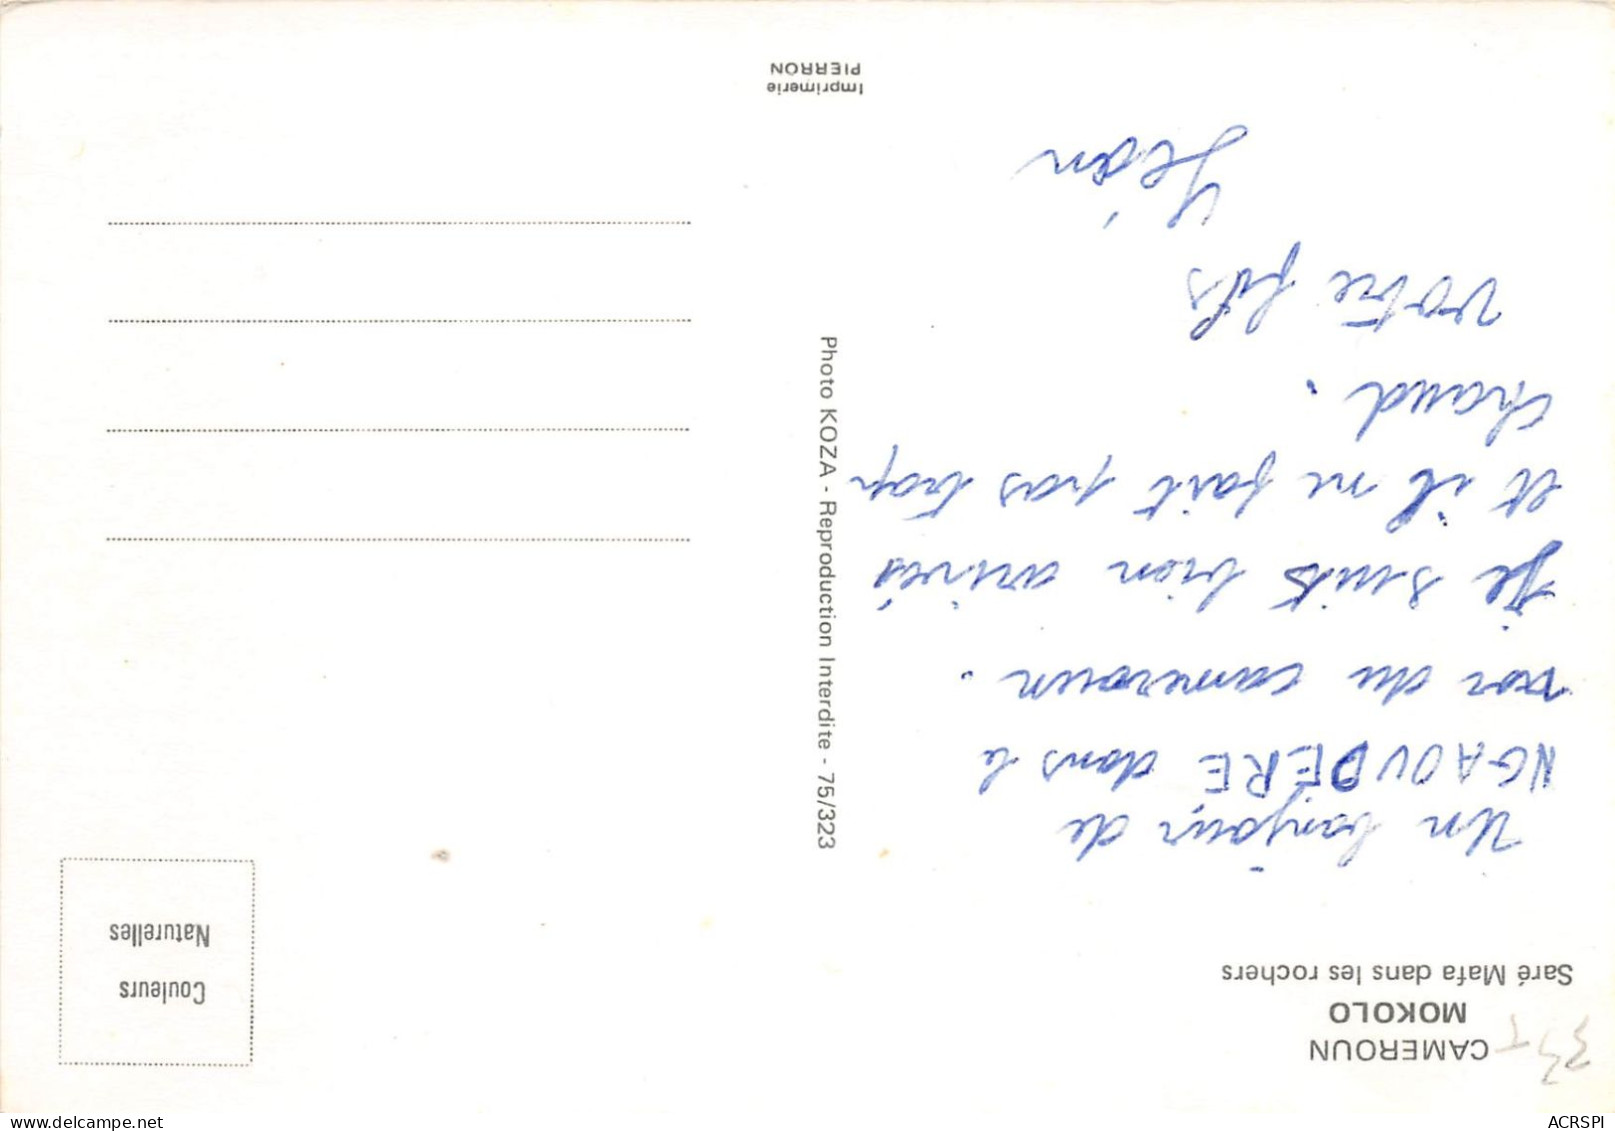 CAMEROUN
MOKOLO
Saré Mafa dans les rochers
Un bonjour de
NGAOUDERE dans le
du cameroun.
Je suis bien arrivés
et il ne fait pas trop
chaud.
votre fils
Couleurs
Naturelles
Photo KOZA - Reproduction Interdite - 75/323
Imprimerie
PIERRON
ACRSPI